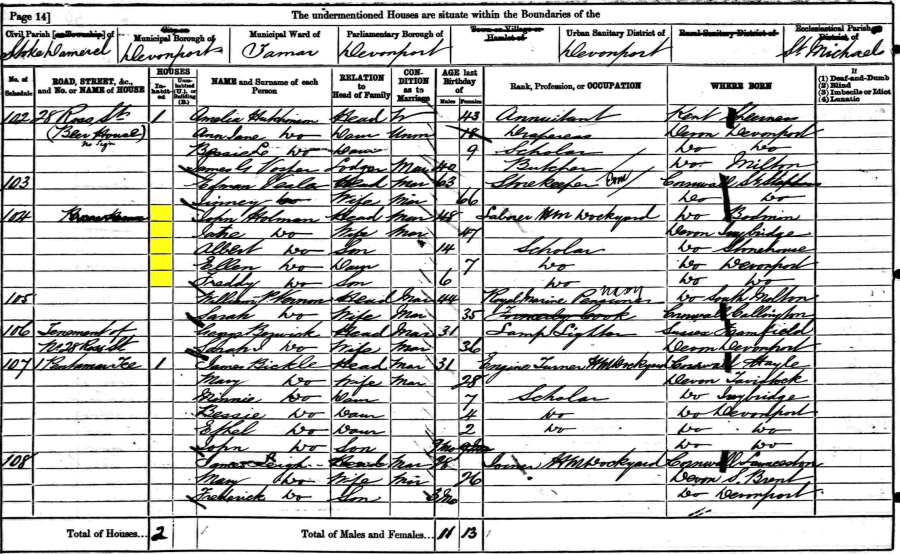 Page 14] The undermentioned Houses are situate within the Boundaries of the
Civil Parish [or Township] of Municipal Borough of Municipal Ward of Parliamentary Borough of Town or Village or Hamlet of Urban Sanitary District of Rural Sanitary District of Ecclesiastical Parish of
Stoke Damerel Devonport Tamar Devonport Devonport St Michael
No. of Schedule ROAD, STREET, &c., and No. or NAME of HOUSE HOUSES Inhabited Uninhabited (U.), or Building (B.) NAME and Surname of each Person RELATION to Head of Family CONDITION as to Marriage AGE last Birthday of Males Females Rank, Profession, or OCCUPATION WHERE BORN If (1) Deaf-and-Dumb (2) Blind (3) Imbecile or Idiot (4) Lunatic
102 28 Ross St 1 Amelia Hutchinson Head W 43 Annuitant Kent Sheerness
(Beer House) Ann Jane Do Daur Unm 18 Draperess Devon Devonport
no Sign Bessie L Do Daur 9 Scholar Do Do
James G Vosper Lodger Mar 40 Butcher Do Milton
103 Veale Head Mar 63 Storekeeper Cornwall St Stephens
Jinney Do Wife Mar 66 Do Do
104 John Holman Head Mar 48 Laborer H M Dockyard Do Bodmin
Do Wife Mar 47 Devon Ivybridge
Albert Do Son 14 Scholar Do Stonehouse
Ellen Do Daur 7 Do Do Devonport
Freddy Do Son 6 Do Do Do
105 William P Vernon Head Mar 44 Royal Marine Pensioner Do South Molton
Sarah Do Wife Mar 35 Formerly Cook Cornwall Callington
106 Tenement of George Head Mar 31 Lamp Lighter Sussex Framfield
No 28 Ross St Sarah Do Wife Mar 36 Devon Devonport
107 1 Tce 1 James Bickle Head Mar 31 Engine Turner H M Dockyard Cornwall Hayle
Mary Do Wife Mar 28 Devon Tavistock
Minnie Do Daur 7 Scholar Do Ivybridge
Bessie Do Daur 4 Do Do Devonport
Ethel Do Daur 2 Do Do Do
John Do Son 9 Mo Do Do
108 James Leigh Head Mar 28 Joiner H M Dockyard Cornwall Launceston
Mary Do Wife Mar 26 Devon S. Brent
Frederick Do Son 3 Mo Do Devonport
Total of Houses... 2 Total of Males and Females... 11 13